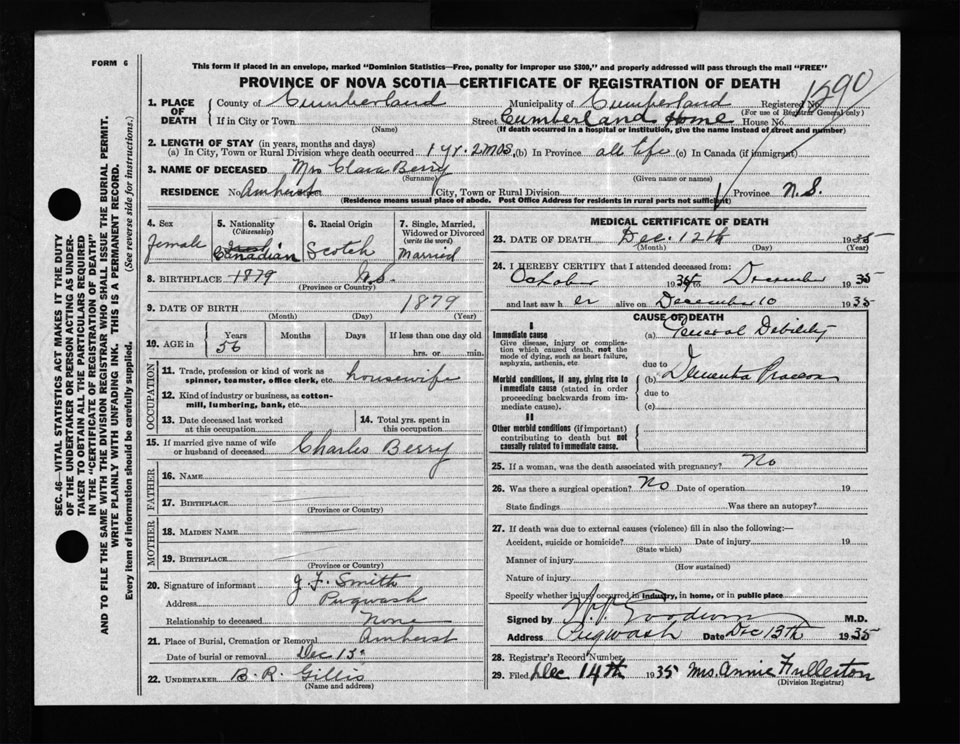 FORM 6
This form if placed in an envelope, marked "Dominion Statistics—Free, penalty for improper use $300," and properly addressed will pass through the mail "FREE"
PROVINCE OF NOVA SCOTIA—CERTIFICATE OF REGISTRATION OF DEATH
1590
1. PLACE OF DEATH
County of Cumberland Municipality of Cumberland Registered No.
(For use of Registrar General only)
If in City or Town Street Cumberland Home House No.
(Name) (If death occurred in a hospital or institution, give the name instead of street and number)
2. LENGTH OF STAY (in years, months and days)
(a) In City, Town or Rural Division where death occurred 1 yr. 2 mos. (b) In Province all life (c) In Canada (if immigrant)
3. NAME OF DECEASED Mrs Clara Berry
(Surname) (Given name or names)
RESIDENCE No. Amherst City, Town or Rural Division Province N.S.
(Residence means usual place of abode. Post Office Address for residents in rural parts not sufficient)
4. Sex
Female
5. Nationality
(Citizenship)
Canadian
6. Racial Origin
Scotch
7. Single, Married, Widowed or Divorced
(write the word)
Married
8. BIRTHPLACE 1879 N.S.
(Province or Country)
9. DATE OF BIRTH 1879
(Month) (Day) (Year)
10. AGE in
Years
56
Months
Days
If less than one day old
hrs. or min.
OCCUPATION
11. Trade, profession or kind of work as spinner, teamster, office clerk, etc. housewife
12. Kind of industry or business, as cotton-mill, lumbering, bank, etc.
13. Date deceased last worked at this occupation
14. Total yrs. spent in this occupation
15. If married give name of wife or husband of deceased Charles Berry
FATHER
16. NAME
17. BIRTHPLACE
(Province or Country)
MOTHER
18. MAIDEN NAME
19. BIRTHPLACE
(Province or Country)
20. Signature of informant J. F. Smith
Address Pugwash
Relationship to deceased None
21. Place of Burial, Cremation or Removal Amherst
Date of burial or removal Dec 13
22. UNDERTAKER B. R. Gillis
(Name and address)
MEDICAL CERTIFICATE OF DEATH
23. DATE OF DEATH Dec. 12th 1935
(Month) (Day) (Year)
24. I HEREBY CERTIFY that I attended deceased from:
October 1934 to December 1935
and last saw her alive on December 10 1935
CAUSE OF DEATH
I
Immediate cause
Give disease, injury or complication which caused death, not the mode of dying, such as heart failure, asphyxia, asthenia, etc
(a) General Debility
due to
Morbid conditions, if any, giving rise to immediate cause (stated in order proceeding backwards from immediate cause).
(b) Dementia Praecox
due to
(c)
II
Other morbid conditions (if important) contributing to death but not causally related to immediate cause.
25. If a woman, was the death associated with pregnancy? No
26. Was there a surgical operation? No Date of operation 19
State findings Was there an autopsy?
27. If death was due to external causes (violence) fill in also the following:—
Accident, suicide or homicide? Date of injury 19
(State which)
Manner of injury
(How sustained)
Nature of injury
Specify whether injury occurred in industry, in home, or in public place
Signed by Goodwin M.D.
Address Pugwash Date Dec 13th 1935
28. Registrar's Record Number
29. Filed Dec 14th 1935 Mrs. Annie Fullerton
(Division Registrar)
SEC. 46—VITAL STATISTICS ACT MAKES IT THE DUTY
OF THE UNDERTAKER OR PERSON ACTING AS UNDER-
TAKER TO OBTAIN ALL THE PARTICULARS REQUIRED
IN THE "CERTIFICATE OF REGISTRATION OF DEATH"
AND TO FILE THE SAME WITH THE DIVISION REGISTRAR WHO SHALL ISSUE THE BURIAL PERMIT.
WRITE PLAINLY WITH UNFADING INK. THIS IS A PERMANENT RECORD.
Every item of information should be carefully supplied. (See reverse side for instructions.)